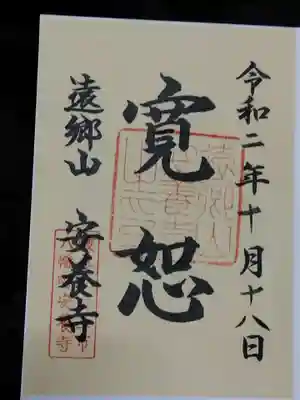 令和二年十月十八日
寛恕
遠郷山 安養寺